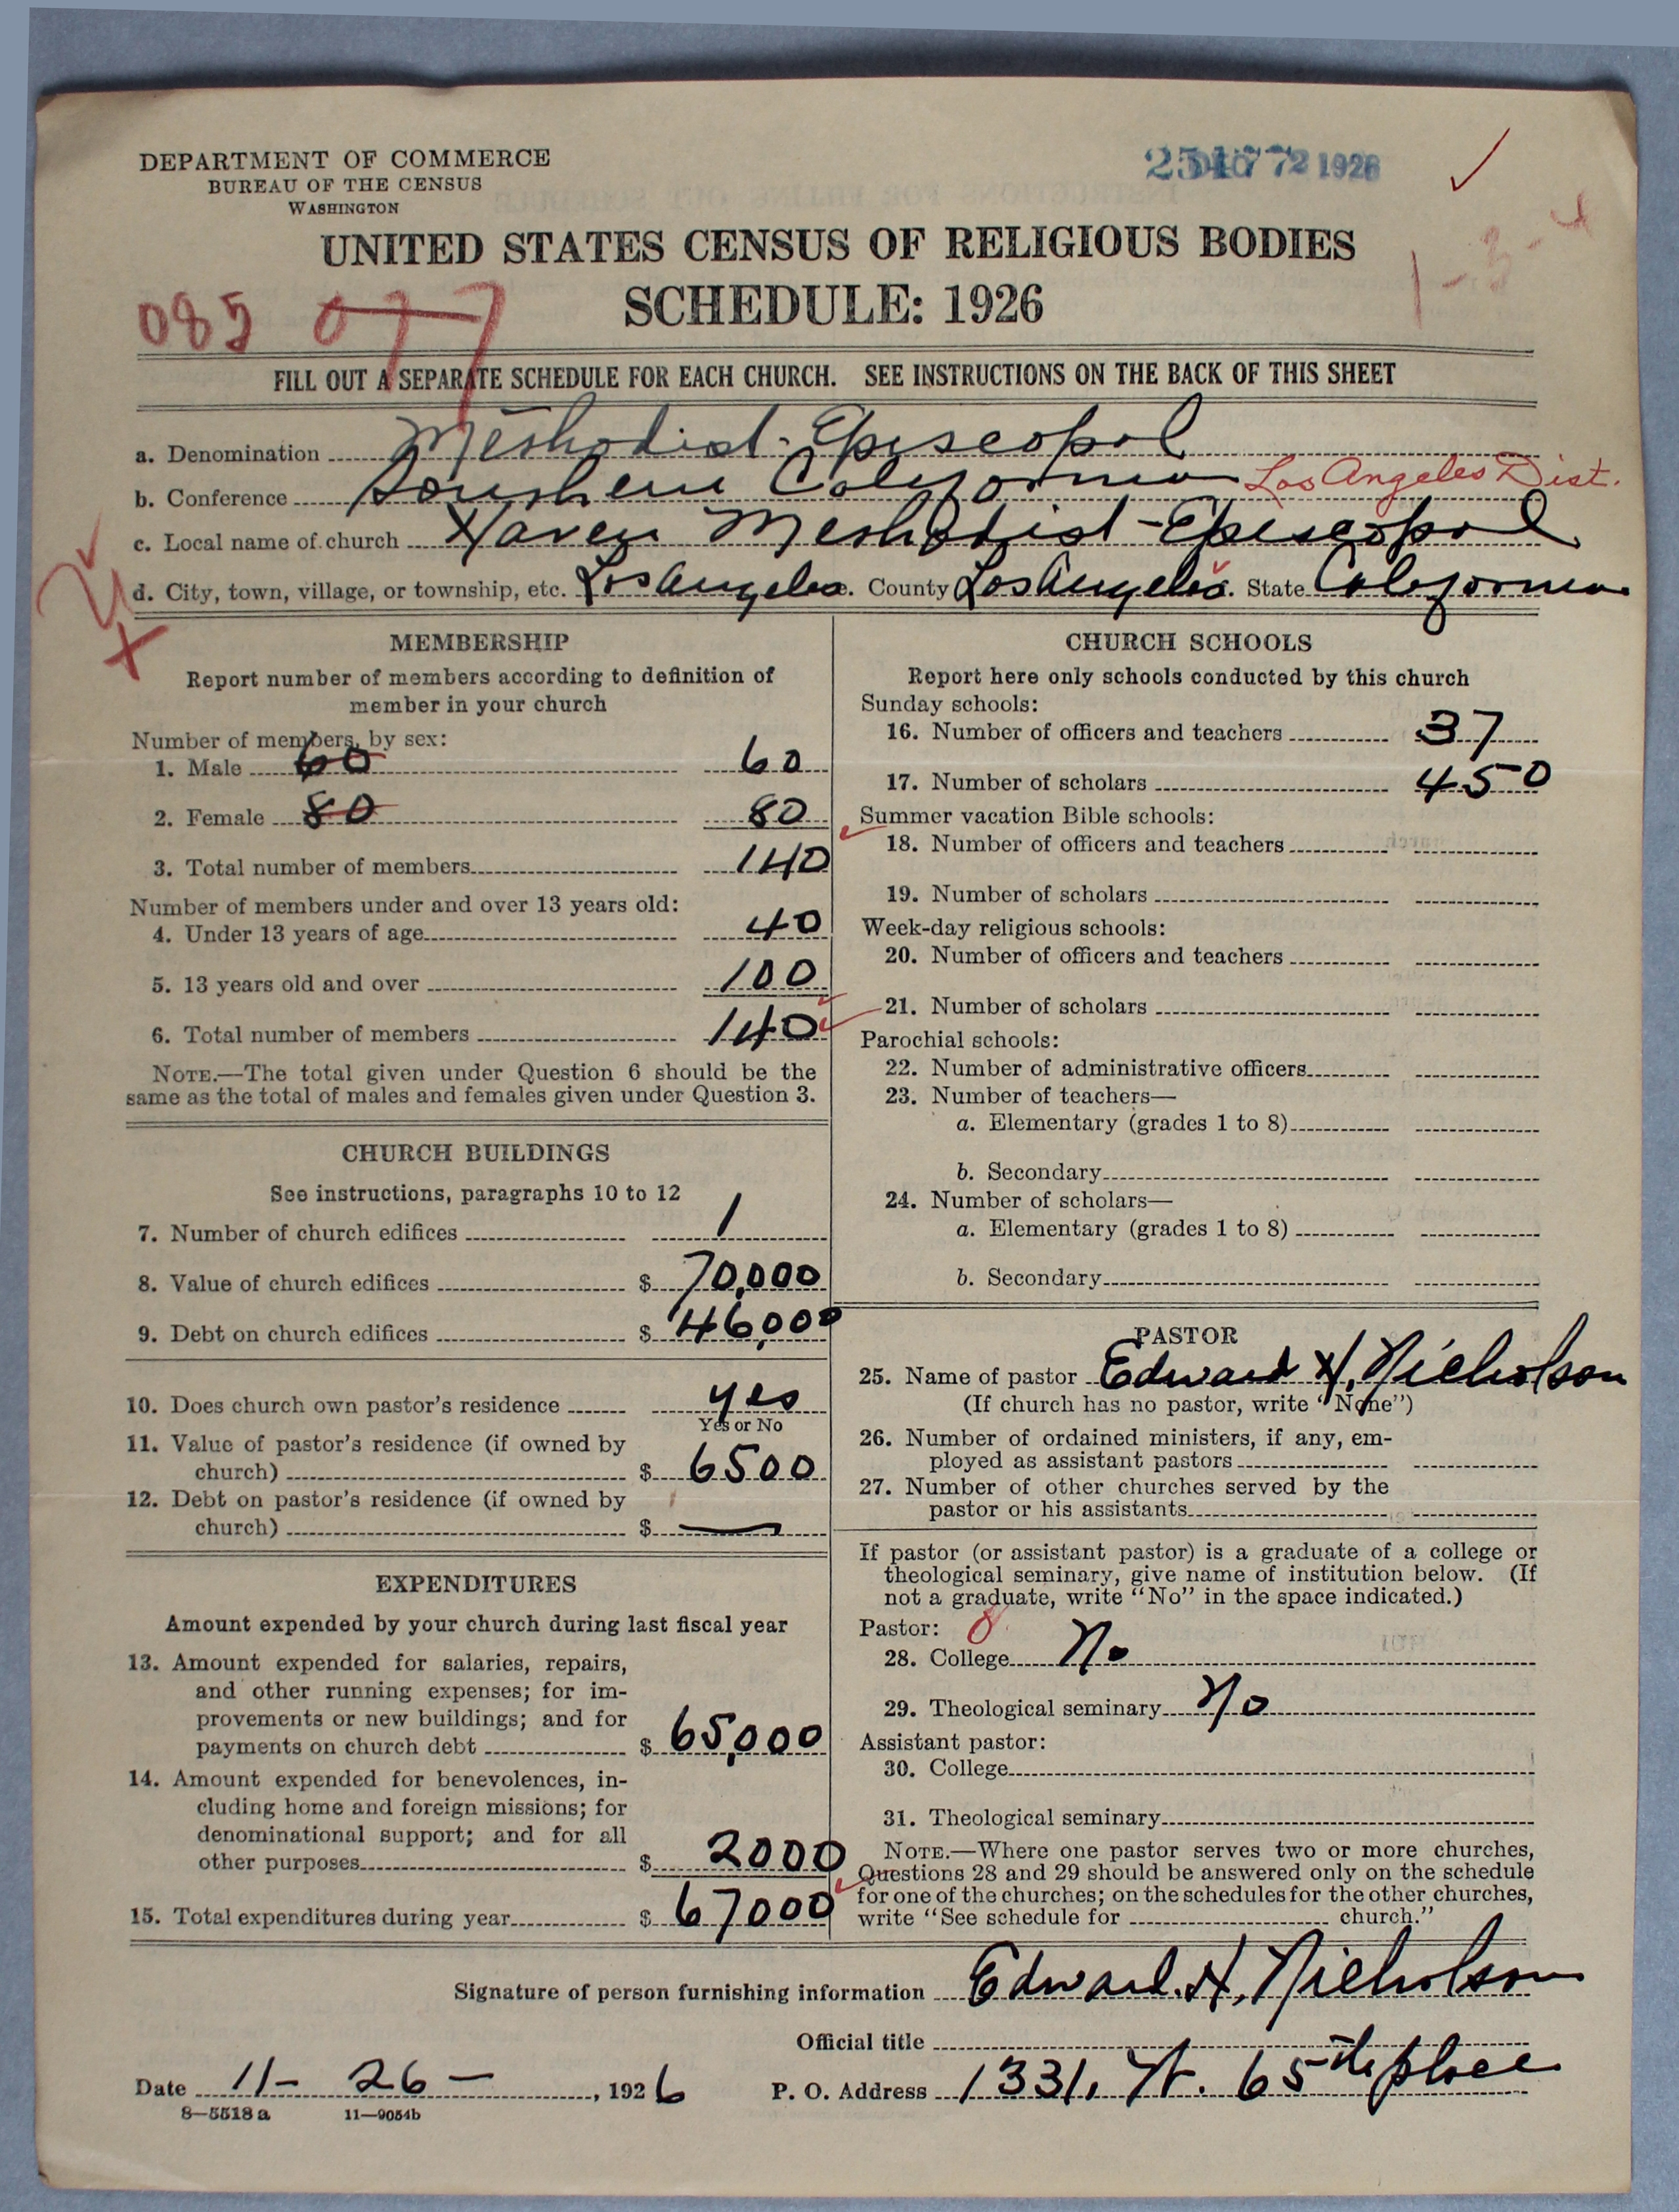 DEPARTMENT OF COMMERCE
BUREAU OF THE CENSUS
WASHINGTON
1926
UNITED STATES CENSUS OF RELIGIOUS BODIES
1-3-4
SCHEDULE: 1926
085 077
FILL OUT A SEPARATE SCHEDULE FOR EACH CHURCH. SEE INSTRUCTIONS ON THE BACK OF THIS SHEET
a. Denomination Methodist-Episcopal
b. Conference Southern California Los Angeles Dist.
c. Local name of church Haven Methodist-Episcopal
d. City, town, village, or township, etc. Los Angeles. County Los Angeles. State California
MEMBERSHIP
Report number of members according to definition of
member in your church
Number of members, by sex:
1. Male 60 60
2. Female 80 80
3. Total number of members 140
Number of members under and over 13 years old:
4. Under 13 years of age 40
5. 13 years old and over 100
6. Total number of members 140
NOTE.—The total given under Question 6 should be the
same as the total of males and females given under Question 3.
CHURCH BUILDINGS
See instructions, paragraphs 10 to 12
7. Number of church edifices 1
8. Value of church edifices $ 70,000
9. Debt on church edifices $ 46,000
10. Does church own pastor's residence yes
Yes or No
11. Value of pastor's residence (if owned by
church) $ 6500
12. Debt on pastor's residence (if owned by
church) $ —
EXPENDITURES
Amount expended by your church during last fiscal year
13. Amount expended for salaries, repairs,
and other running expenses; for im-
provements or new buildings; and for
payments on church debt $ 65,000
14. Amount expended for benevolences, in-
cluding home and foreign missions; for
denominational support; and for all
other purposes $ 2000
15. Total expenditures during year $ 67000
CHURCH SCHOOLS
Report here only schools conducted by this church
Sunday schools:
16. Number of officers and teachers 37
17. Number of scholars 450
Summer vacation Bible schools:
18. Number of officers and teachers
19. Number of scholars
Week-day religious schools:
20. Number of officers and teachers
21. Number of scholars
Parochial schools:
22. Number of administrative officers
23. Number of teachers—
a. Elementary (grades 1 to 8)
b. Secondary
24. Number of scholars—
a. Elementary (grades 1 to 8)
b. Secondary
PASTOR
25. Name of pastor Edward H. Nicholson
(If church has no pastor, write "None")
26. Number of ordained ministers, if any, em-
ployed as assistant pastors
27. Number of other churches served by the
pastor or his assistants
If pastor (or assistant pastor) is a graduate of a college or
theological seminary, give name of institution below. (If
not a graduate, write "No" in the space indicated.)
Pastor: 0
28. College No
29. Theological seminary No
Assistant pastor:
30. College
31. Theological seminary
NOTE.—Where one pastor serves two or more churches,
Questions 28 and 29 should be answered only on the schedule
for one of the churches; on the schedules for the other churches,
write "See schedule for church."
Signature of person furnishing information Edward. H. Nicholson
Official title
Date 11- 26 -, 1926 P. O. Address 1331, W. 65th place
8-5518a 11-9054b